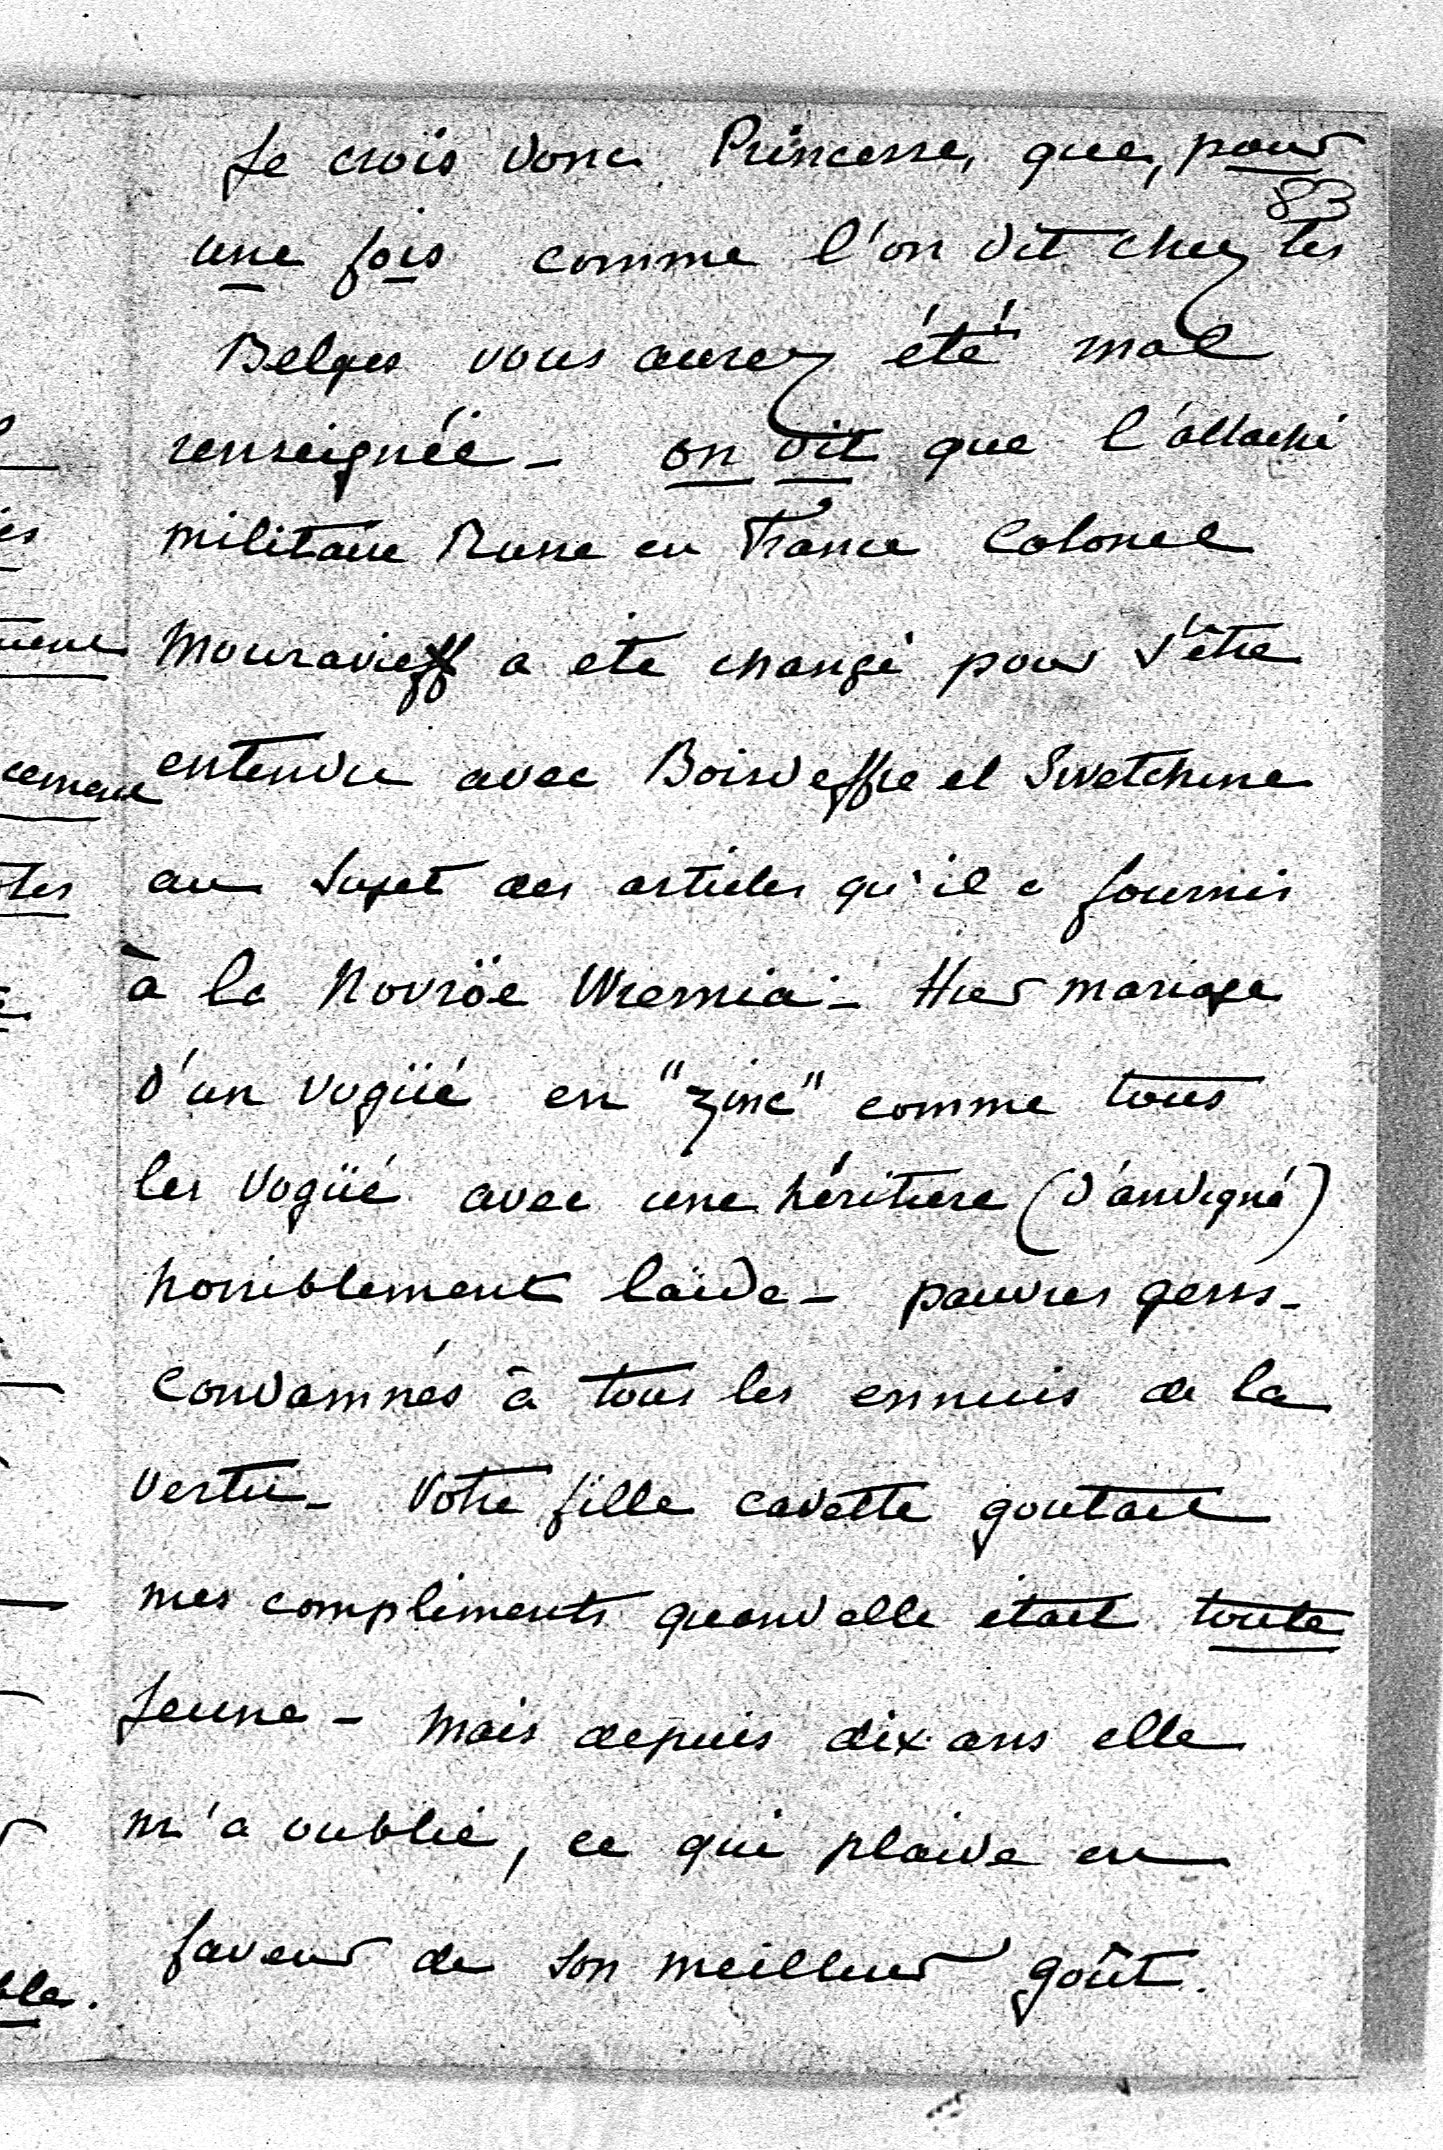 Je crois donc Princesse, que, pour
83
une fois comme l'on dit chez les
Belges vous aurez été mal
renseignée - on dit que l'attaché
militaire Russe en France Colonel
Mouravieff a ete changé pour s'être
entendu avec Boisdeffre et Swetchine
au sujet des articles qu'il a fournis
à la Novoïe Wremia - Hier mariage
d'un Vogüé en "zinc" comme tous
les Vogüé avec une héritiere (d'andigné)
horriblement laide - pauvres gens -
Condamnés à tous les ennuis de la
vertu - Votre fille cadette goutait
mes compliments quand elle était toute
jeune - Mais depuis dix ans elle
m'a oublié, ce qui plaide en
faveur de son meilleur goût.